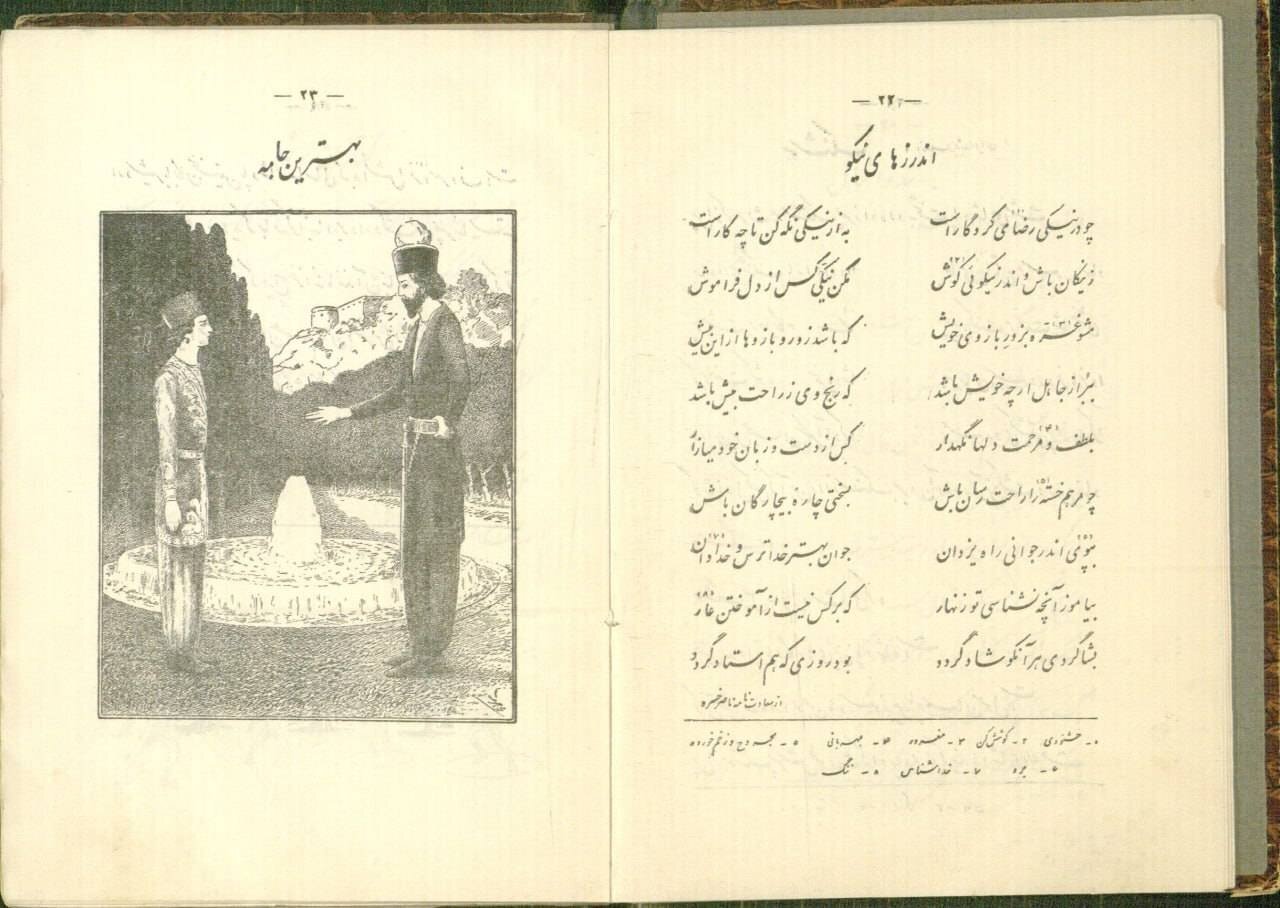 — ۲۲ —
اندرزهای نیکو
چو در نیکی رضای کردگار است به از نیکی نگه کن تا چه کار است
ز نیکان باش و اندر نیکوئی کوش مکن نیکی کس از دل فراموش
مشو غره بزور بازوی خویش که باشد زور و بازوها از این بیش
ببر از جاهل ارچه خویش باشد که رنج وی ز راحت بیش باشد
بلطف و مرحمت دلها نگهدار کس از دست و زبان خود میازار
چو مرهم خسته را راحت رسان باش بسختی چارهٔ بیچارگان باش
بپوی اندر جوانی راه یزدان جوان بهتر خدا ترس و خدا دان
بیاموز آنچه نشناسی تو زنهار که بر کس نیست از آموختن عار
بشاگردی هر آنکو شاد گردد بود روزی که هم استاد گردد
از سعادت نامه ناصر خسرو
۱- خشنودی ۲- کوشش کن ۳- مغرور ۴- مهربانی ۵- مجروح و زخم خورده
۶- برو ۷- خداشناس ۸- ننگ
— ۲۳ —
بهترین جامه